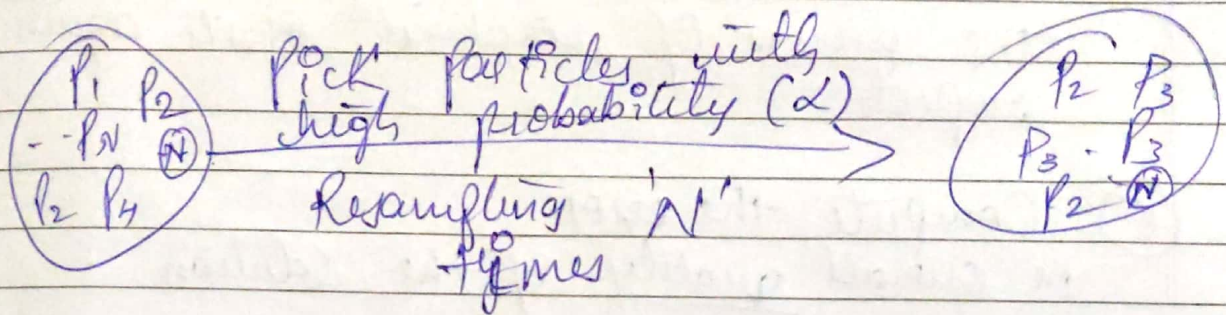 P1 P2
- - PN N
P2 P4
Pick particles with
high probability (α)
Resampling 'N'
tymes
P2 P3
P3 - P3
P2 N